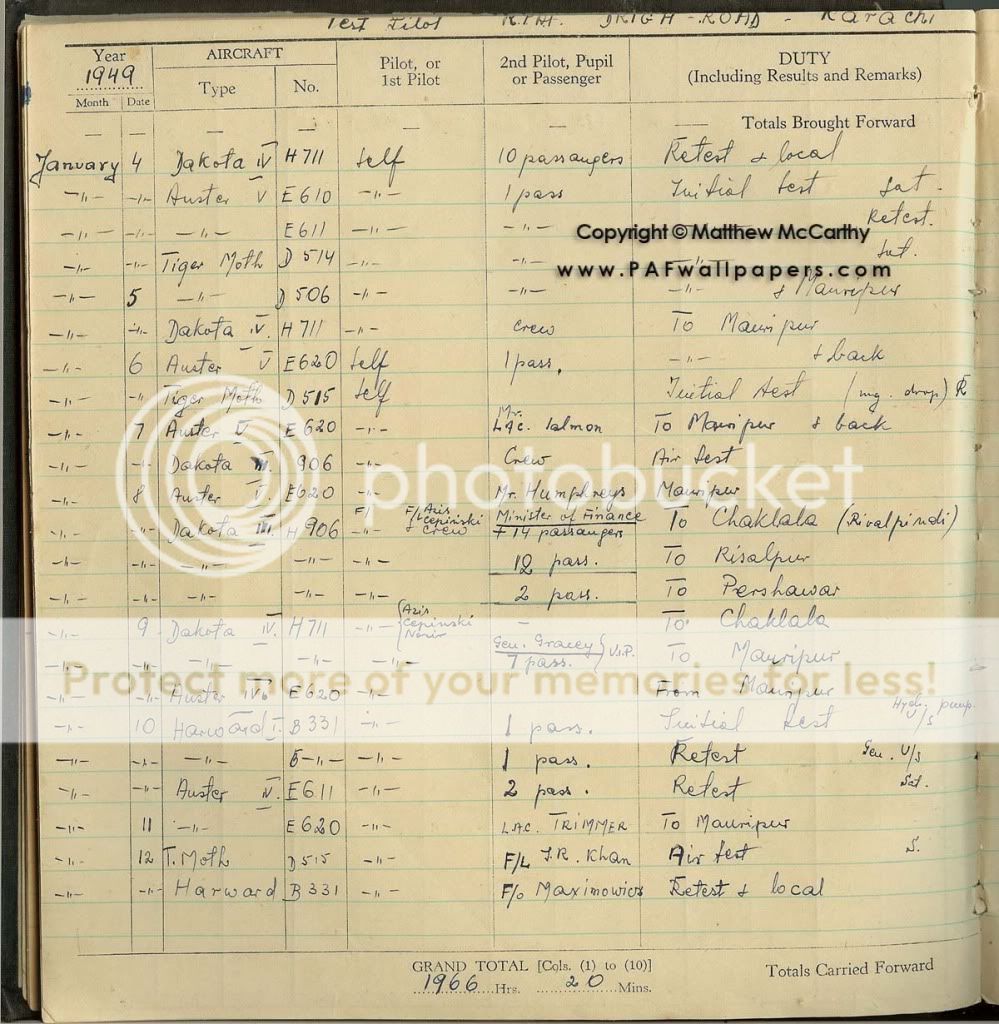 Test Pilot R.P.A.F. DRIGH-ROAD - Karachi
Year 1949 AIRCRAFT Pilot, or 1st Pilot 2nd Pilot, Pupil or Passenger DUTY (Including Results and Remarks)
Month Date Type No.
— — — — — — — Totals Brought Forward
January 4 Dakota IV H711 Self 10 passangers Retest & local
-"- -"- Auster V E610 -"- 1 pass Initial test Sat.
-"- -"- -"- E611 -"- Retest.
Copyright © Matthew McCarthy
-"- -"- Tiger Moth D514 -"- -"- Sat.
www.PAFwallpapers.com
-"- 5 -"- D506 -"- -"- -"- & Mauripur
-"- -"- Dakota IV. H711 -"- Crew To Mauripur
-"- 6 Auster V E620 Self 1 pass. -"- & back
-"- -"- Tiger Moth D515 Self Initial test (mg. drop) R
-"- 7 Auster V E620 -"- Mr. L.A.C. Salmon To Mauripur & back
-"- -"- Dakota III. 906 -"- Crew Air test
photobucket
-"- 8 Auster V. E620 -"- Mr. Humphreys Mauripur
-"- -"- Dakota III. H906 -"- F/L Azis F/L Cepinski Crew Minister of Finance + 14 passangers To Chaklala (Rivalpindi)
-"- -"- -"- -"- -"- 12 pass. To Risalpur
-"- -"- -"- -"- -"- 2 pass. To Pershawar
-"- 9 Dakota IV. H711 -"- (Azis Cepinski Nasir — To Chaklala
-"- -"- -"- -"- -"- Gen. Gracey 7 pass. } V.I.P. To Mauripur
Protect more of your memories for less!
-"- -"- Auster IV. E620 -"- From Mauripur
-"- 10 Harward I. B331 -"- 1 pass. Initial test Hydr. pump. U/S
-"- -"- -"- B-"- -"- 1 pass. Retest Gen. U/S
-"- -"- Auster IV. E611 -"- 2 pass. Retest Sat.
-"- 11 -"- E620 -"- L.A.C. TRIMMER To Mauripur
-"- 12 T. Moth D515 -"- F/L J.R. Khan Air test S.
-"- -"- Harward B331 -"- F/O Maximowics Retest & local
GRAND TOTAL [Cols. (1) to (10)] Totals Carried Forward
1966 Hrs. 20 Mins.